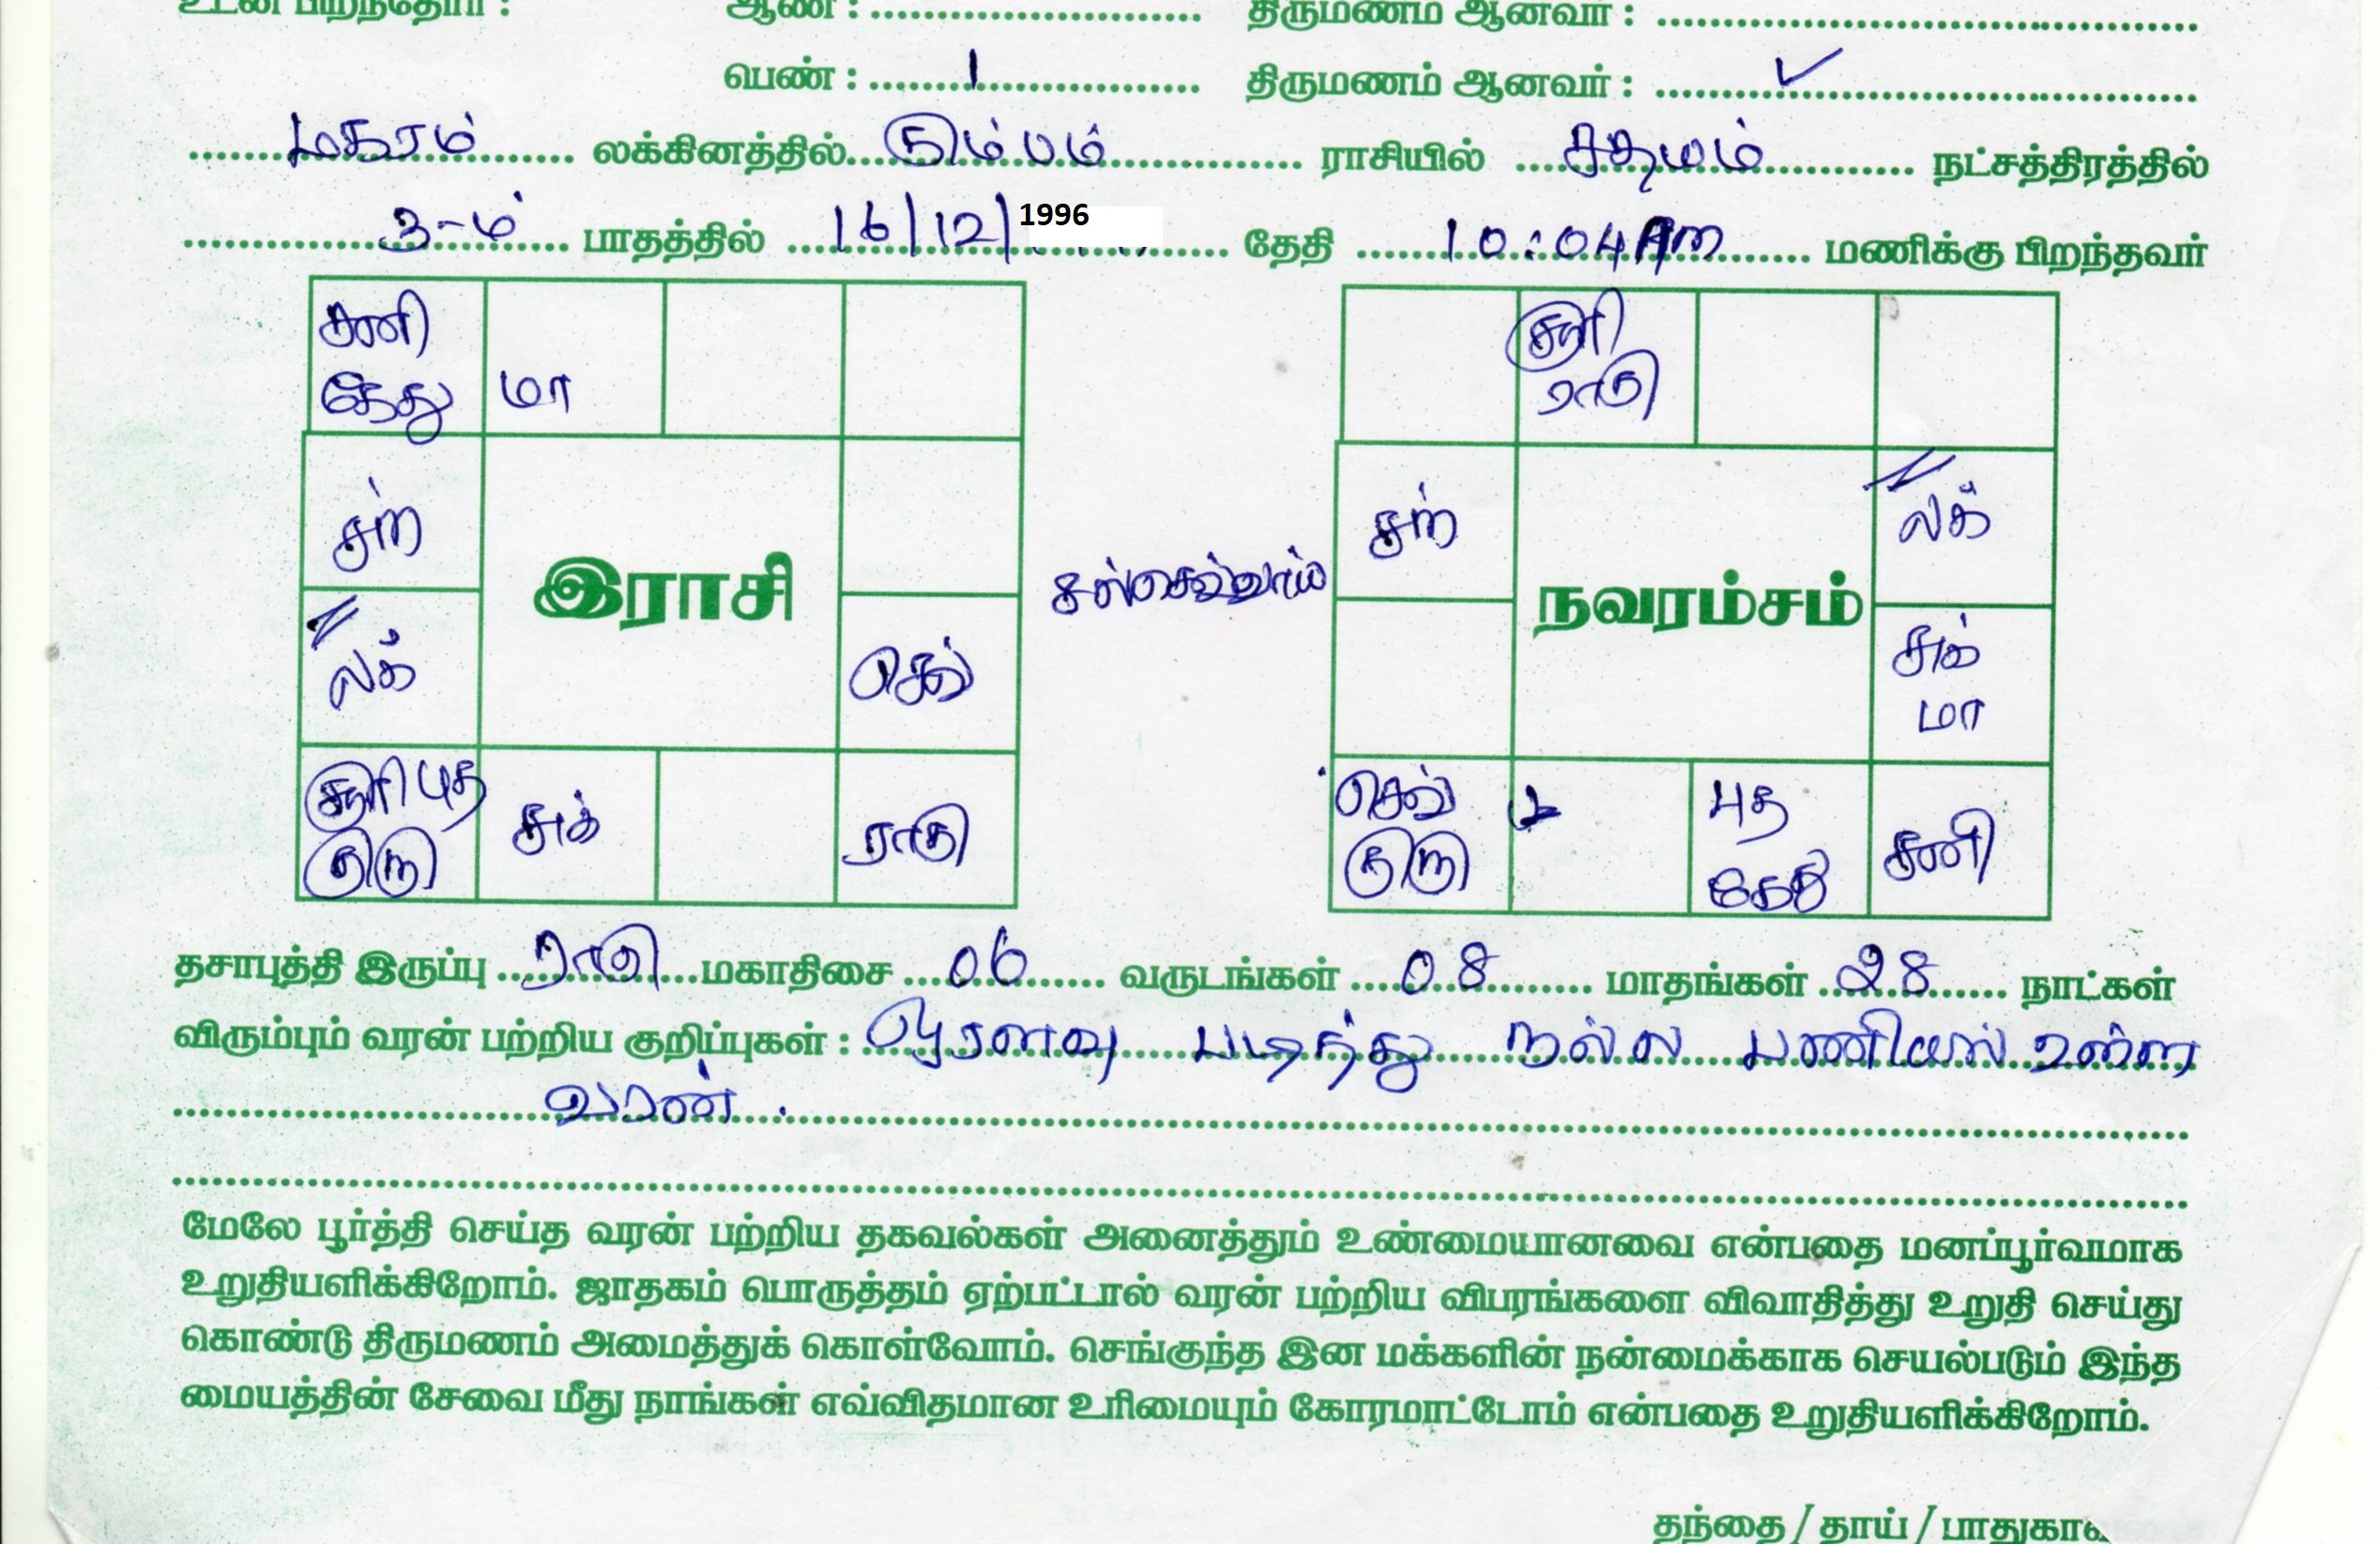 உடன் பிறந்தோர் : ஆண் : .............................. திருமணம் ஆனவர் : ..............................
பெண் : ........1........ திருமணம் ஆனவர் : ........✓........
மகரம் லக்கினத்தில் கும்பம் ராசியில் சதயம் நட்சத்திரத்தில்
3-ம் பாதத்தில் 16/12/1996 தேதி 10:04 AM மணிக்கு பிறந்தவர்
சனி
கேது
மா
சந்
லக்
இராசி
செவ்
சூரி புத
குரு
சுக்
ராகு
சூரி
ராகு
சந்
நவரம்சம்
லக்
சுக்
மா
செவ்
குரு
புத
கேது
சனி
தசாபுத்தி இருப்பு ராகு மகாதிசை 06 வருடங்கள் 08 மாதங்கள் 28 நாட்கள்
விரும்பும் வரன் பற்றிய குறிப்புகள் : ஓரளவு படித்து நல்ல பணியில் உள்ள
வரன்.
மேலே பூர்த்தி செய்த வரன் பற்றிய தகவல்கள் அனைத்தும் உண்மையானவை என்பதை மனப்பூர்வமாக
உறுதியளிக்கிறோம். ஜாதகம் பொருத்தம் ஏற்பட்டால் வரன் பற்றிய விபரங்களை விவாதித்து உறுதி செய்து
கொண்டு திருமணம் அமைத்துக் கொள்வோம். செங்குந்த இன மக்களின் நன்மைக்காக செயல்படும் இந்த
மையத்தின் சேவை மீது நாங்கள் எவ்விதமான உரிமையும் கோரமாட்டோம் என்பதை உறுதியளிக்கிறோம்.
தந்தை / தாய் /